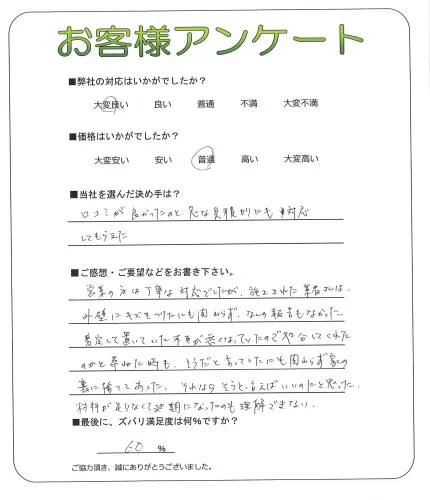 お客様アンケート
■弊社の対応はいかがでしたか？
大変良い 良い 普通 不満 大変不満
■価格はいかがでしたか？
大変安い 安い 普通 高い 大変高い
■当社を選んだ決め手は？
口コミが良かったのと、急な見積りにも対応
してもらえた
■ご感想・ご要望などをお書き下さい。
営業の方は丁寧な対応でしたが、施工された業者さんは、
外壁にキズをつけたにも関わらず、なんの報告もなかった。
剪定して置いていた木が無くなっていたので処分してくれた
のかと尋ねた時も、そうだと言っていたにも関わらず家の
裏に捨ててあった。それならそうと言えばいいのにと思った。
材料が足りなくて延期になったのも理解できない。
■最後に、ズバリ満足度は何％ですか？
60 ％
ご協力頂き、誠にありがとうございました。